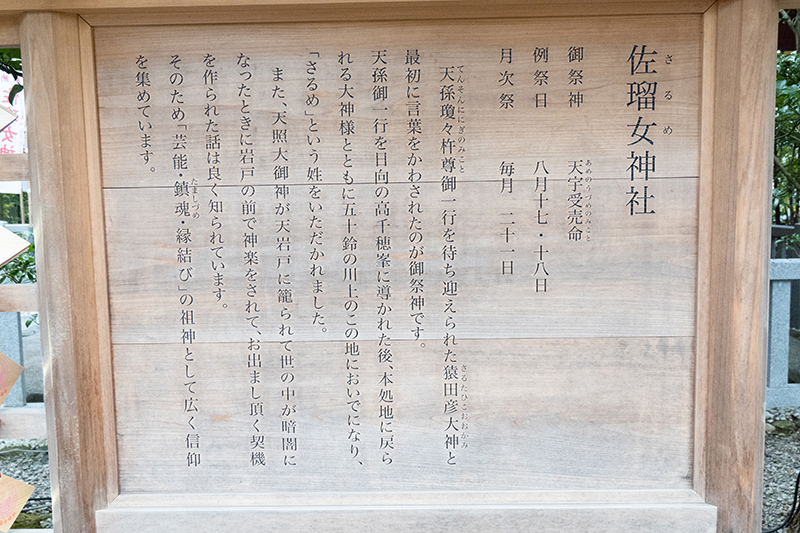 佐瑠女神社
さるめ
御祭神　天宇受売命
あめのうづめのみこと
例祭日　八月十七・十八日
月次祭　毎月　二十一日
天孫瓊々杵尊御一行を待ち迎えられた猿田彦大神と
てんそんににぎのみこと
さるたひこおおかみ
最初に言葉をかわされたのが御祭神です。
天孫御一行を日向の高千穂峯に導かれた後、本処地に戻ら
れる大神様とともに五十鈴の川上のこの地においでになり、
「さるめ」という姓をいただかれました。
また、天照大御神が天岩戸に籠られて世の中が暗闇に
なったときに岩戸の前で神楽をされて、お出まし頂く契機
を作られた話は良く知られています。
そのため「芸能・鎮魂・縁結び」の祖神として広く信仰
たましづめ
を集めています。